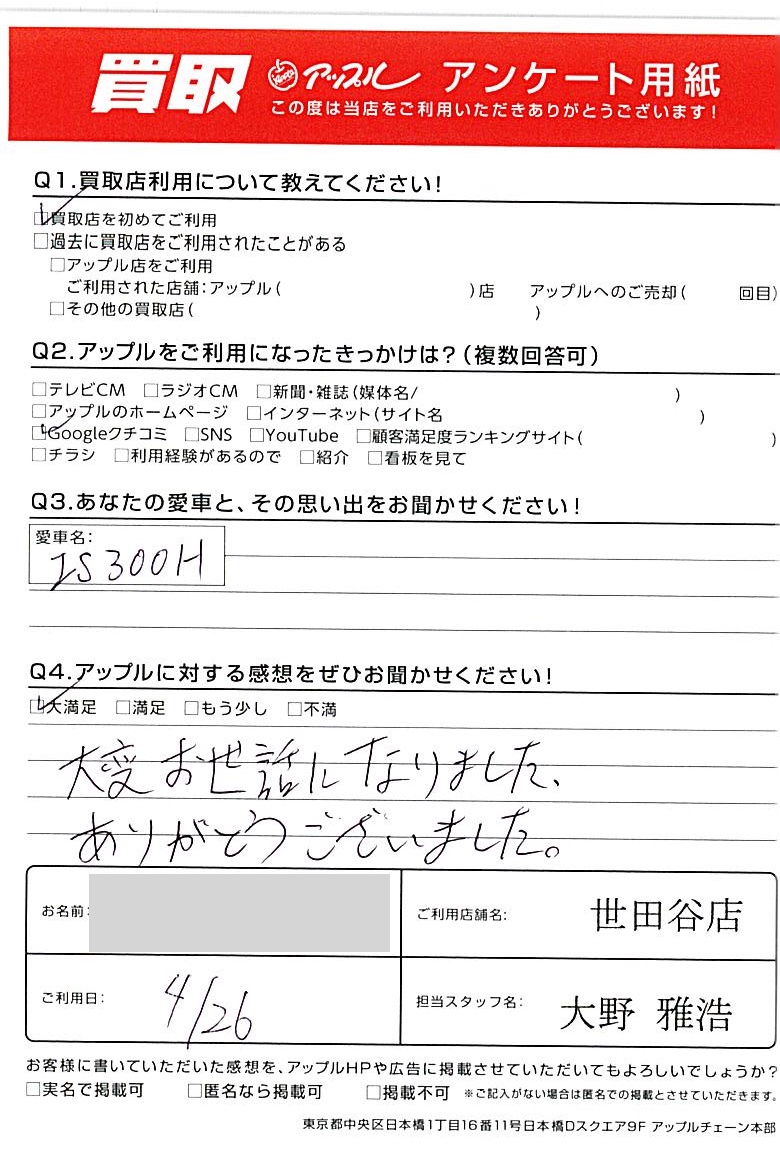 買取 アップル アンケート用紙
この度は当店をご利用いただきありがとうございます!
Q1.買取店利用について教えてください!
☑買取店を初めてご利用
□過去に買取店をご利用されたことがある
□アップル店をご利用
ご利用された店舗:アップル( )店 アップルへのご売却( 回目)
□その他の買取店( )
Q2.アップルをご利用になったきっかけは?(複数回答可)
□テレビCM □ラジオCM □新聞・雑誌(媒体名/ )
□アップルのホームページ □インターネット(サイト名 )
☑Googleクチコミ □SNS □YouTube □顧客満足度ランキングサイト( )
□チラシ □利用経験があるので □紹介 □看板を見て
Q3.あなたの愛車と、その思い出をお聞かせください!
愛車名:
IS300H
Q4.アップルに対する感想をぜひお聞かせください!
☑大満足 □満足 □もう少し □不満
大変お世話になりました、
ありがとうございました。
お名前: ご利用店舗名: 世田谷店
ご利用日: 4/26 担当スタッフ名: 大野 雅浩
お客様に書いていただいた感想を、アップルHPや広告に掲載させていただいてもよろしいでしょうか?
□実名で掲載可 □匿名なら掲載可 □掲載不可 ※ご記入がない場合は匿名での掲載とさせていただきます。
東京都中央区日本橋1丁目16番11号日本橋Dスクエア9F アップルチェーン本部